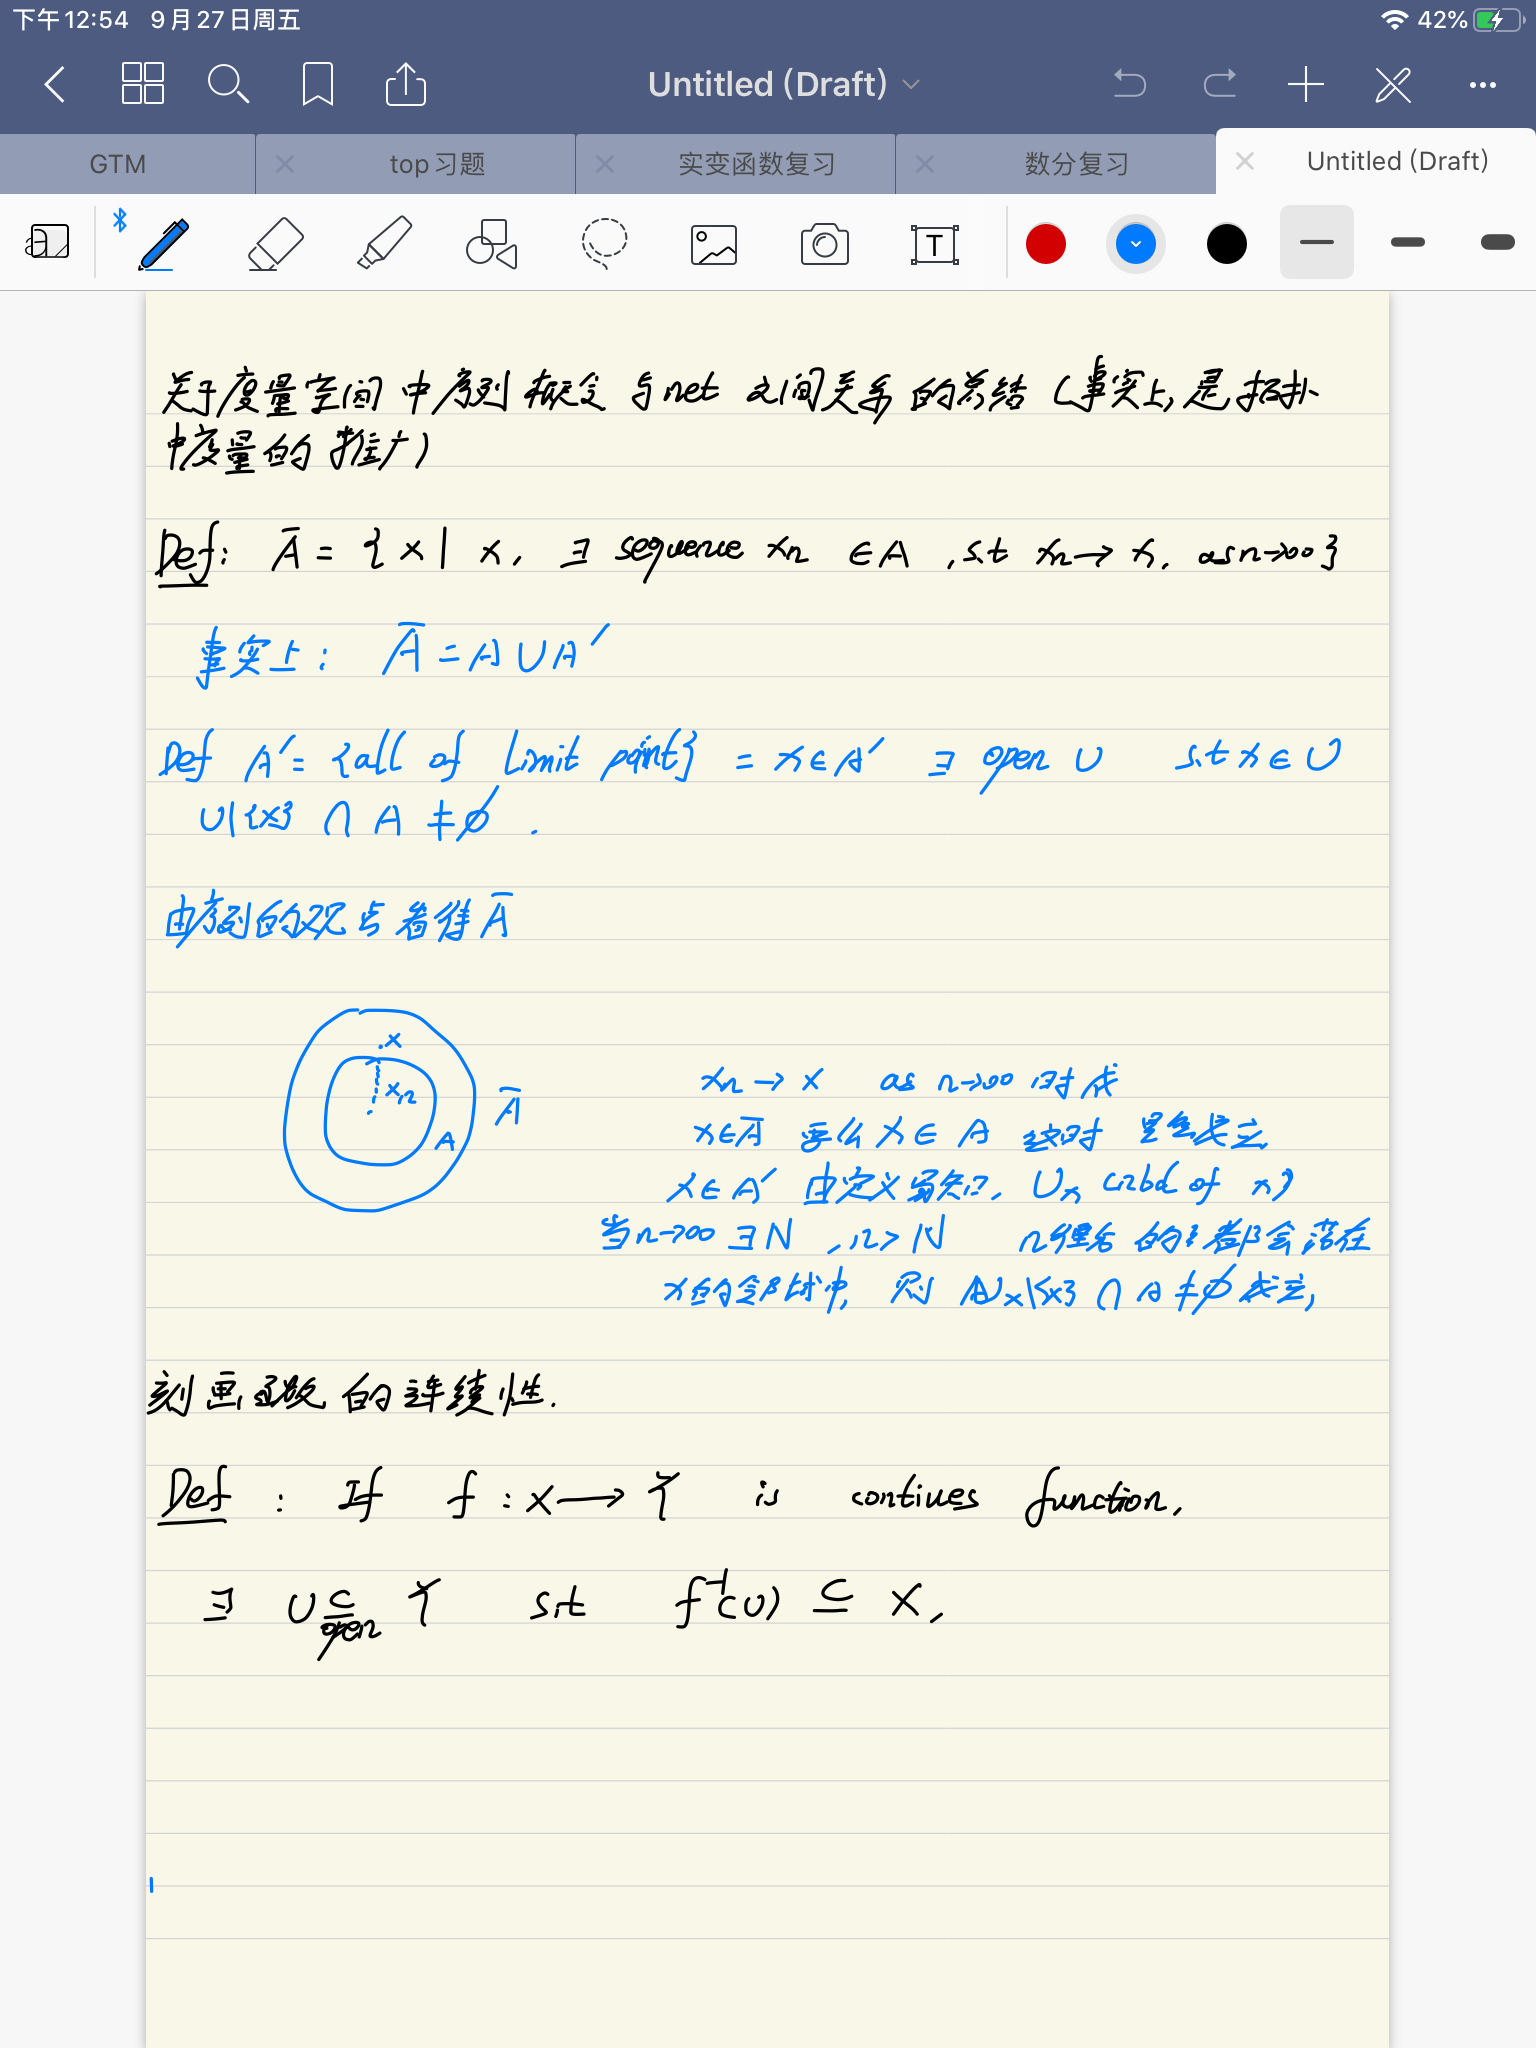 下午12:54 9月27日周五 42%
Untitled (Draft)
GTM top习题 实变函数复习 数分复习 Untitled (Draft)
关于度量空间中序列概念与net之间关系的总结（事实上,是拓扑
中度量的推广）
Def: Ā = {x| x, ∃ sequence xn ∈A , s.t xn→x. as n→∞}
事实上: Ā = A∪A′
Def A′= {all of limit point} = x∈A′ ∃ open U s.t x∈U
U\{x} ∩ A ≠ ∅.
由序列的观点看待Ā
x
xn
A
Ā
xn→x as n→∞ 时成
x∈Ā 要么x∈A 这时显然成立
x∈A′ 由定义易知. Ux (nbd of x)
当n→∞ ∃N , n>N 的 都会落在
x的邻域中, 则 Ux\{x} ∩ A ≠ ∅ 成立,
刻画函数的连续性.
Def : If f : X→Y is contiues function,
∃ U ⊆ Y s.t f⁻¹(U) ⊆ X,
open